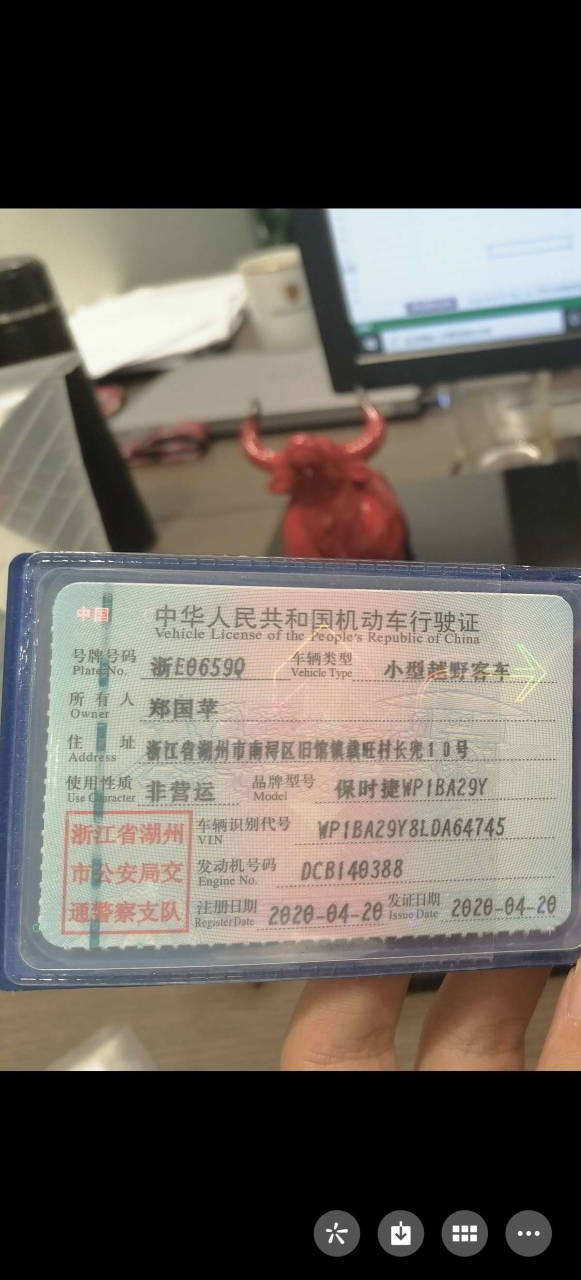 中国
中华人民共和国机动车行驶证
Vehicle License of the People's Republic of China
号牌号码 浙E0659Q 车辆类型 小型越野客车
Plate No. Vehicle Type
所有人 郑国苹
Owner
住址 浙江省湖州市南浔区旧馆镇 旺村长兜10号
Address
使用性质 非营运 品牌型号 保时捷WP1BA29Y
Use Character Model
浙江省湖州
市公安局交
通警察支队
车辆识别代号 WP1BA29Y8LDA64745
VIN
发动机号码 DCB140388
Engine No.
注册日期 2020-04-20 发证日期 2020-04-20
Register Date Issue Date